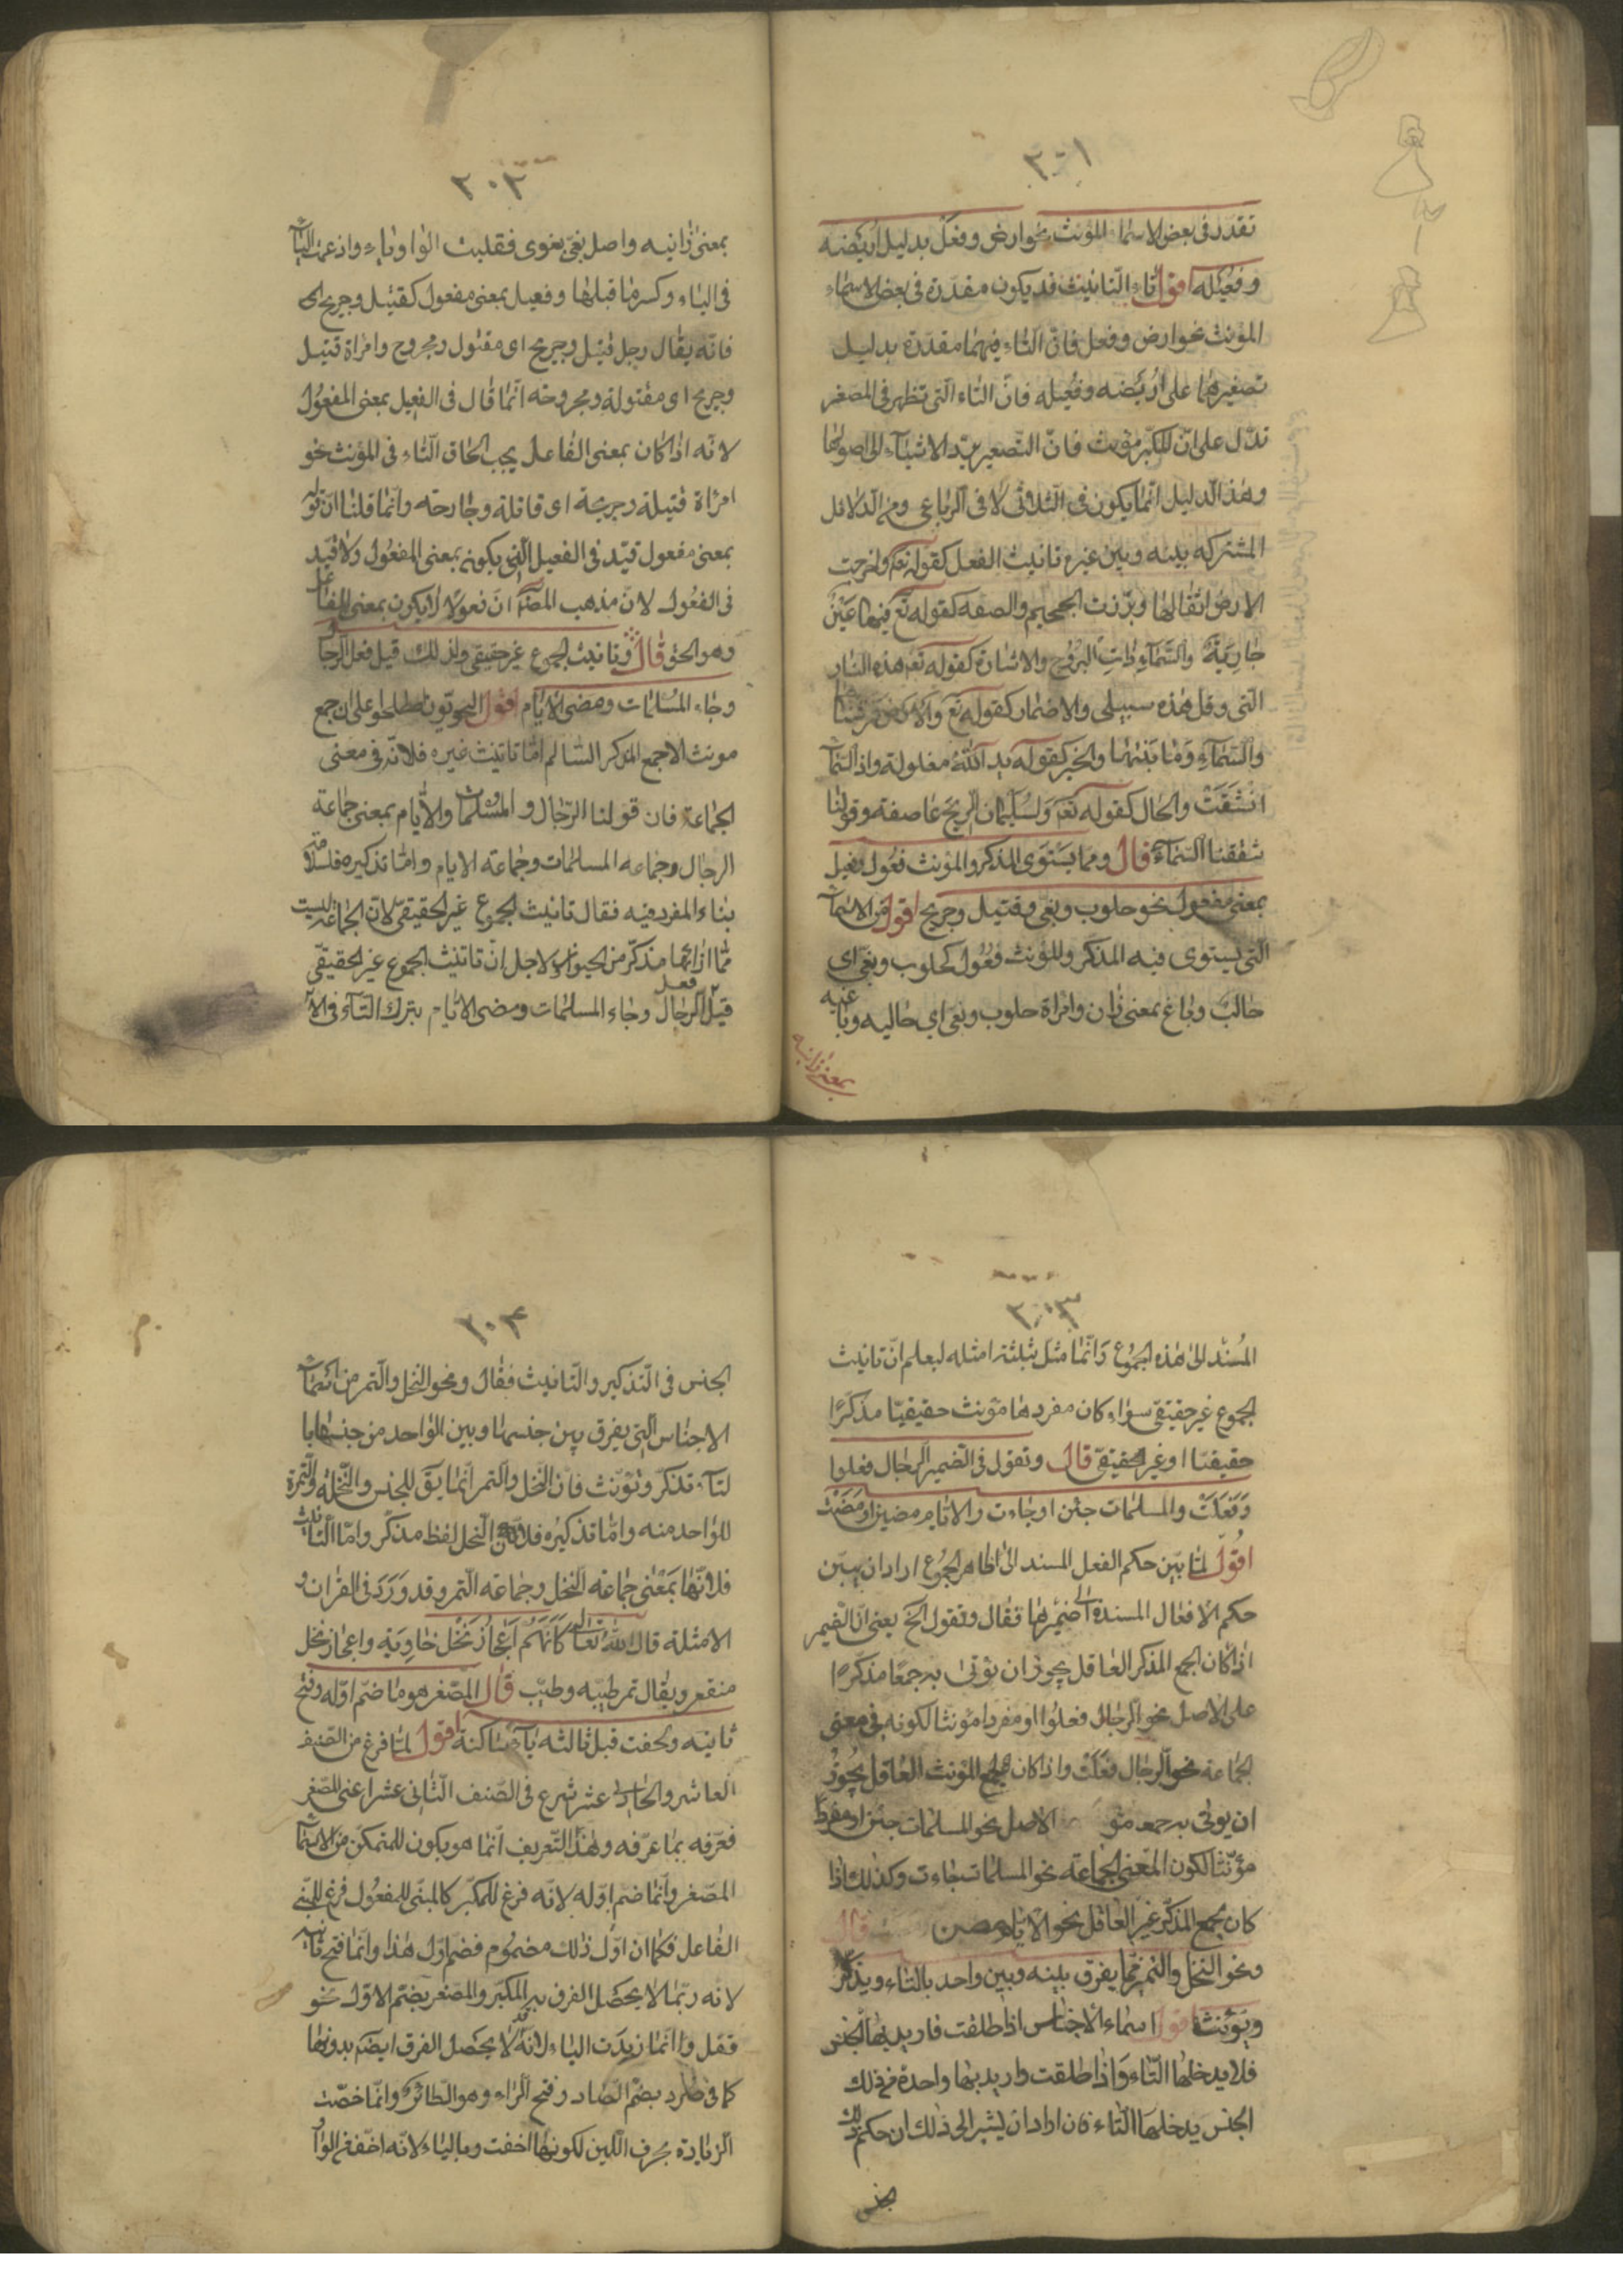 ٣٠١
تقدر فى بعض الاسماء المؤنث نحو ارض وفعل بدليل اريضه
وفعيله اقول تاء التانيث قد يكون مقدرة فى بعض الاسماء
المؤنث نحو ارض وفعل فان التاء فيهما مقدرة بدليل
تصغيرهما على اُريضه وفُعيله فانّ التاء الّتى تظهر فى المصغر
تدّل على انّ المكبّر مؤنث فانّ التّصغير يردّ الاشياء الى اصولها
وهذا الّدليل انّما يكون فى الثلاثى لا فى الرباعى ومن الّدلائل
المشتركه بينه وبين غيره تانيث الفعل كقوله تع واخرجت
الارض اثقالها وبرّزت الجحيم والصفه كقوله تع فيها عَيْنٌ
جَارِيَةٌ والسّماء ذات البُرُوج والاشارة كقوله تع هذه النار
الّتى وقل هذه سبيلى والاضمار كقوله تع والارض فرشناها
والسّماءِ وَمَا بَنٰيها والخبر كقوله يد اللهُ مغلولة واذا السّماء
انْشَقَتْ والحال كقوله تع ولسُليمان الرّيح عاصفة وقولنا
شققنا السّماء قال ومما يستوى المذكر والمؤنث فعُول وفعيل
بمعنى مفعول نحو حلوب وبغى وقتيل وجريح اقول من الاسماء
الّتى يستوى فيه المذكّر والمؤنث فعُول كحلوب وبغىّ اى
حالبٌ وباغ بمعنى زان وامراة حلوب وبغى اى حالبه وباغيه
بمعنى زانيه
٣٠٢
بمعنى زانيه واصل بغىّ بغوى فقلبت الواو ياء وادغمت الياء
فى الياء وكسر ما قبلها وفعيل بمعنى مفعول كقتيل وجريح
فانّه يقال رجل قتيل وجريح اى مقتول ومجروح وامراة قتيل
وجريح اى مقتولة ومجروحه انّما قال فى الفعيل بمعنى المفعُول
لانّه اذا كان بمعنى الفاعل يجب الحاق التّاء فى المؤنث نحو
امراة قتيلة وجريحة اى قاتلة وجارحه وانّما قلنا انّ قوله
بمعنى مفعول قيّد فى الفعيل الّتى يكونه بمعنى المفعُول ولا قيّد
فى الفعُول لانّ مذهب المصنّف انّ فعولا لا يكون بمعنى الفاعل
وهو الحق قال وتانيث الجموع غير حقيقى ولذلك قيل فعل الرجال
وجاء المُسلمات ومضى الايّام اقول النحويّون اصطلحوا على ان جمع
مونث الا جمع المذكر السّالم امّا تانيث غيره فلانّه فى معنى
الجماعة فان قولنا الرّجال والمسُلمات والايّام بمعنى جماعة
الرجال وجماعه المسلمات وجماعته الايام وامّا تذكيره فلسلامة
بناء المفرد فيه فقال تانيث الجموع غير الحقيقى لانّ الجماعة ليست
ممّا ازائها مذكّر من الحيوان ولاجل انّ تانيث الجموع غير الحقيقىّ
قيل فعل الرجال وجاء المسلمات ومضى الايّام بترك التّاء فى
٣٠٣
المُسْنَد الى هذه الجمُوع وَانّما مثل بثلثة امثله ليعلم انّ تانيث
الجموع غير حقيقى سواء كان مفردها مؤنث حقيقيّا مذكّرًا
حقيقيّا او غير الحقيقىّ قال وتقول فى الضمير الرجال فعلوا
وَفَعَلَتْ والمسلمات جئن او جاءت والايّام مضين او مَضَتْ
اقوُل لمّا بيّن حكم الفعل المسند الى الظاهر الجمُوع اراد ان يبيّن
حكم الافعال المسندة الى ضميرها فقال وتقول الخ يعنى انّ الضمير
اذا كان الجمع المذكر العاقل يجوز ان يؤتى به جمعًا مذكّرًا
على الاصل نحو الرجال فعلُوا او مفردا مؤنثا لكونه فى معنى
الجماعة نحو الرجال فعَلَتْ واذا كان الجمع المؤنث العاقل يجُوزُ
ان يوتى به جمعه مؤ الاصل نحو المسلمات جئن او مفردًا
مؤنّثا لكون المعنى الجماعة نحو المسلمات جاءت وكذلك اذا
كان جمع المذكّر غير العاقل نحو الايّام مضين قال
ونحو النخل والتمر ممّا يفرق بينه وبين واحد بالتاء ويذكر
ويؤنث اقول اسماء الاجناس اذا طلقت فاريد بها الجنس
فلا يدخلها التّاء وَاذا طلقت واريد بها واحدة من ذلك
الجنس يدخلها التّاء فان اراد ان يشير الى ذلك ان حكم ذلك
الجنس
٣٠٤
الجنس فى التّذكير والتّانيث فقال ونحو النخل والتمر من اسماء
الاجناس الّتى يفرق بين جنسها وبين الواحد من جنسها با
لتاء تذكّر وتؤنّث فان النّخل والتمر انّما يَق للجنس والنّخله والتّمرة
للواحد منه وامّا تذكيره فلانّ النّحل لفظ مذكّر وامّا التانيث
فلانّها بمَعْنى جماعه النّخل وجماعه التمر وقد وَرَدَ فى القران و
الامثلة قال الله تعالى كَاَنَّهُم اَعْجَازُ نَخْل خَاوِيَة واعجاز نخل
منقعر ويقال تمر طيبه وطيّب قال المصّغر هو ما ضم اوّله وفتح
ثانيه ولحقت قبل ثالثه ياء ساكنة اقول لمّا فرغ من الصنف
العاشر والحادى عشر شرع فى الصّنف الثّانى عشر اعنى المصّغر
فعّرفه بما عرّفه وهذا التّعريف انّما هو يكون للمتمكّن من الاسماء
المصّغر وانّما ضم اوّله لانّه فرع للمكبّر كما المبنى للمفعُول فرع للمبنى
الفاعل فكما ان اوّل ذلك مضمُوم فضم اوّل هذا وانّما فتح ثانيه
لانّه ربّما لا يحصل الفرق بين المكبّر والمصّغر بضّم الاوّل نحو
قفل وانّما زيدت الياء لانّه قد لا يحصل الفرق ايضَم بدونها
كما فى صُرد بضمّ الصاد وفتح الرّاء وهو الطائر وانّما خصّت
الزيادة بحرف اللّين لكونها اخفت وما بالياء لانّه اخّف من الواو